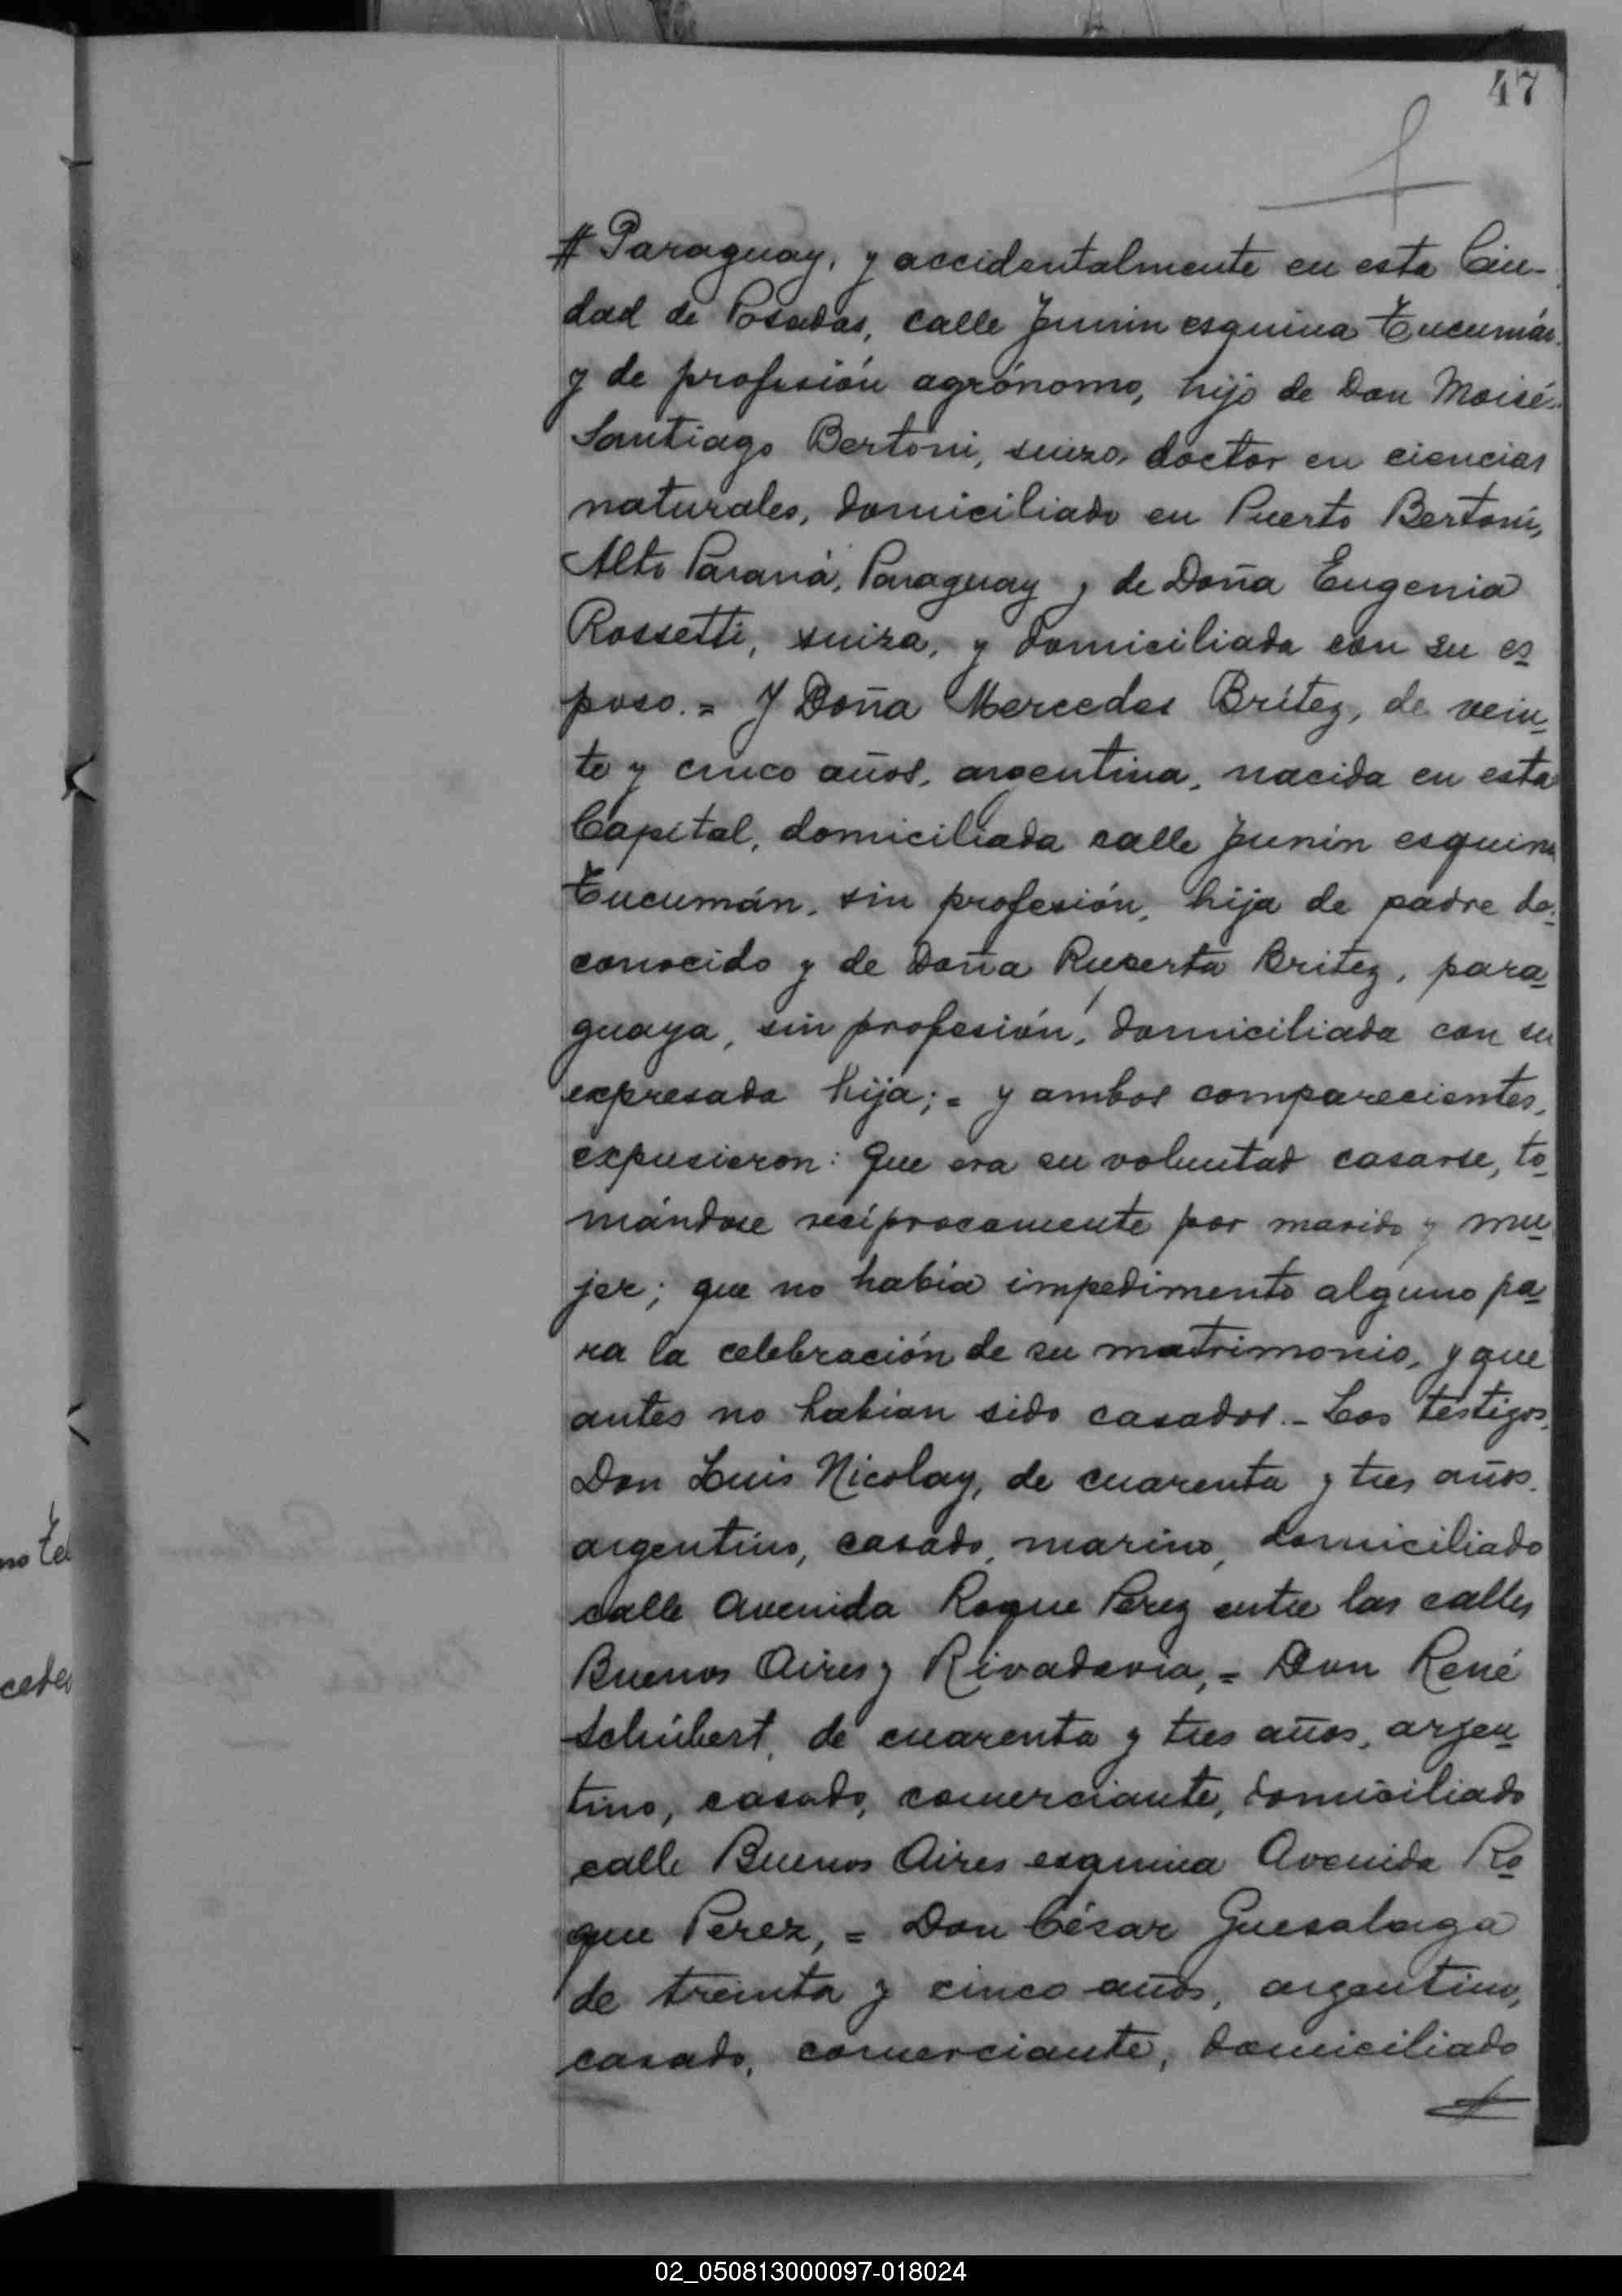 47
# Paraguay, y accidentalmente en esta Ciu-
dad de Posadas, calle Junin esquina Tucumán
y de profesión agrónomo, hijo de Don Moisés
Santiago Bertoni, suizo, doctor en ciencias
naturales, domiciliado en Puerto Bertoni,
Alto Paraná, Paraguay y de Doña Eugenia
Rossetti, suiza, y domiciliada con su es
poso.= Y Doña Mercedes Brítez, de vein
te y cinco años, argentina, nacida en esta
Capital, domiciliada calle Junin esquina
Tucumán, sin profesión, hija de padre des
conocido y de Doña Ruperta Britez, para
guaya, sin profesión, domiciliada con su
expresada hija;= y ambos comparecientes,
expusieron: Que era su voluntad casarse, to
mándose recíprocamente por marido y mu
jer; que no había impedimento alguno pa
ra la celebración de su matrimonio, y que
antes no habían sido casados.- Los testigos,
Don Luis Nicolay, de cuarenta y tres años,
argentino, casado, marino, domiciliado
calle Avenida Roque Perez entre las calles
Buenos Aires y Rivadavia,= Don René
Schúbert, de cuarenta y tres años, argen
tino, casado, comerciante, domiciliado
calle Buenos Aires esquina Avenida Ro
que Perez,= Don César Guesalaga
de treinta y cinco años, argentino,
casado, comerciante, domiciliado
02_050813000097-018024